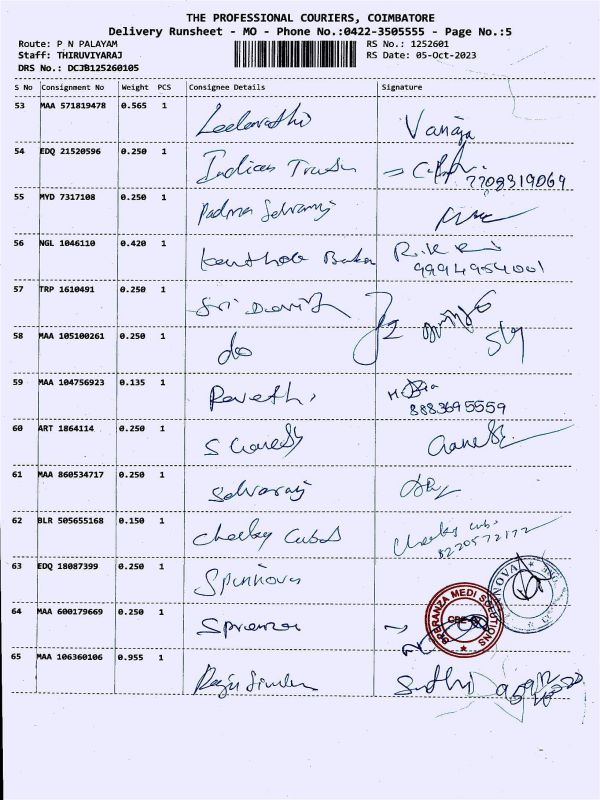 THE PROFESSIONAL COURIERS, COIMBATORE
Delivery Runsheet - MO - Phone No.:0422-3505555 - Page No.:5
Route: P N PALAYAM RS No.: 1252601
Staff: THIRUVIYARAJ RS Date: 05-Oct-2023
DRS No.: DCJB125260105
S No Consignment No Weight PCS Consignee Details Signature
53 MAA 571819478 0.565 1 Leelavathi Vanaja
54 EDQ 21520596 0.250 1 Indian
7708319069
55 MYD 7317108 0.250 1 Padma Selvaraj
56 NGL 1046110 0.420 1 R.K
9994954001
57 TRP 1610491 0.250 1 Sri
58 MAA 105100261 0.250 1 do
59 MAA 104756923 0.135 1 Revathi
8883695559
60 ART 1864114 0.250 1 S Ganesh Ganesh
61 MAA 860534717 0.250 1 Selvaraj
62 BLR 505655168 0.150 1 Cheeky Cubs Cheeky Cubs
8220572172
63 EDQ 18087399 0.250 1 Spinnova
64 MAA 600179669 0.250 1
MEDI SOLUTIONS
CBE
65 MAA 106360106 0.955 1